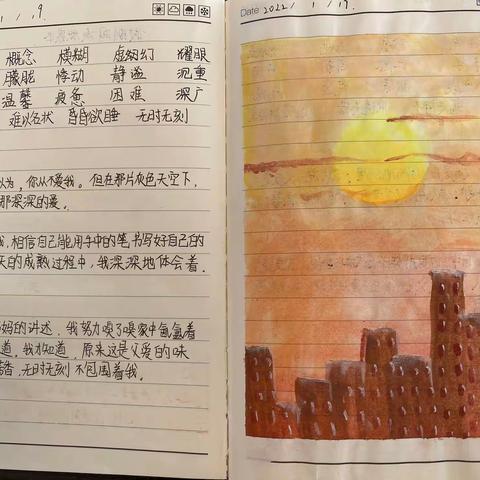 1 . 19.
Date 2022 / 1 / 19.
概念 模糊 虚幻 耀眼
朦胧 悸动 静谧 沉重
温馨 疲惫 困难 深广
难以名状 昏昏欲睡 无时无刻
以为，你从不爱我。但在那片灰色天空下，
那深深的爱。
我，相信自己能用手中的笔书写好自己的
天的成熟过程中，我深深地体会着
妈的讲述，我努力嗅了嗅家中氤氲着
道，我才知道，原来这是父爱的味
无时无刻不包围着我。